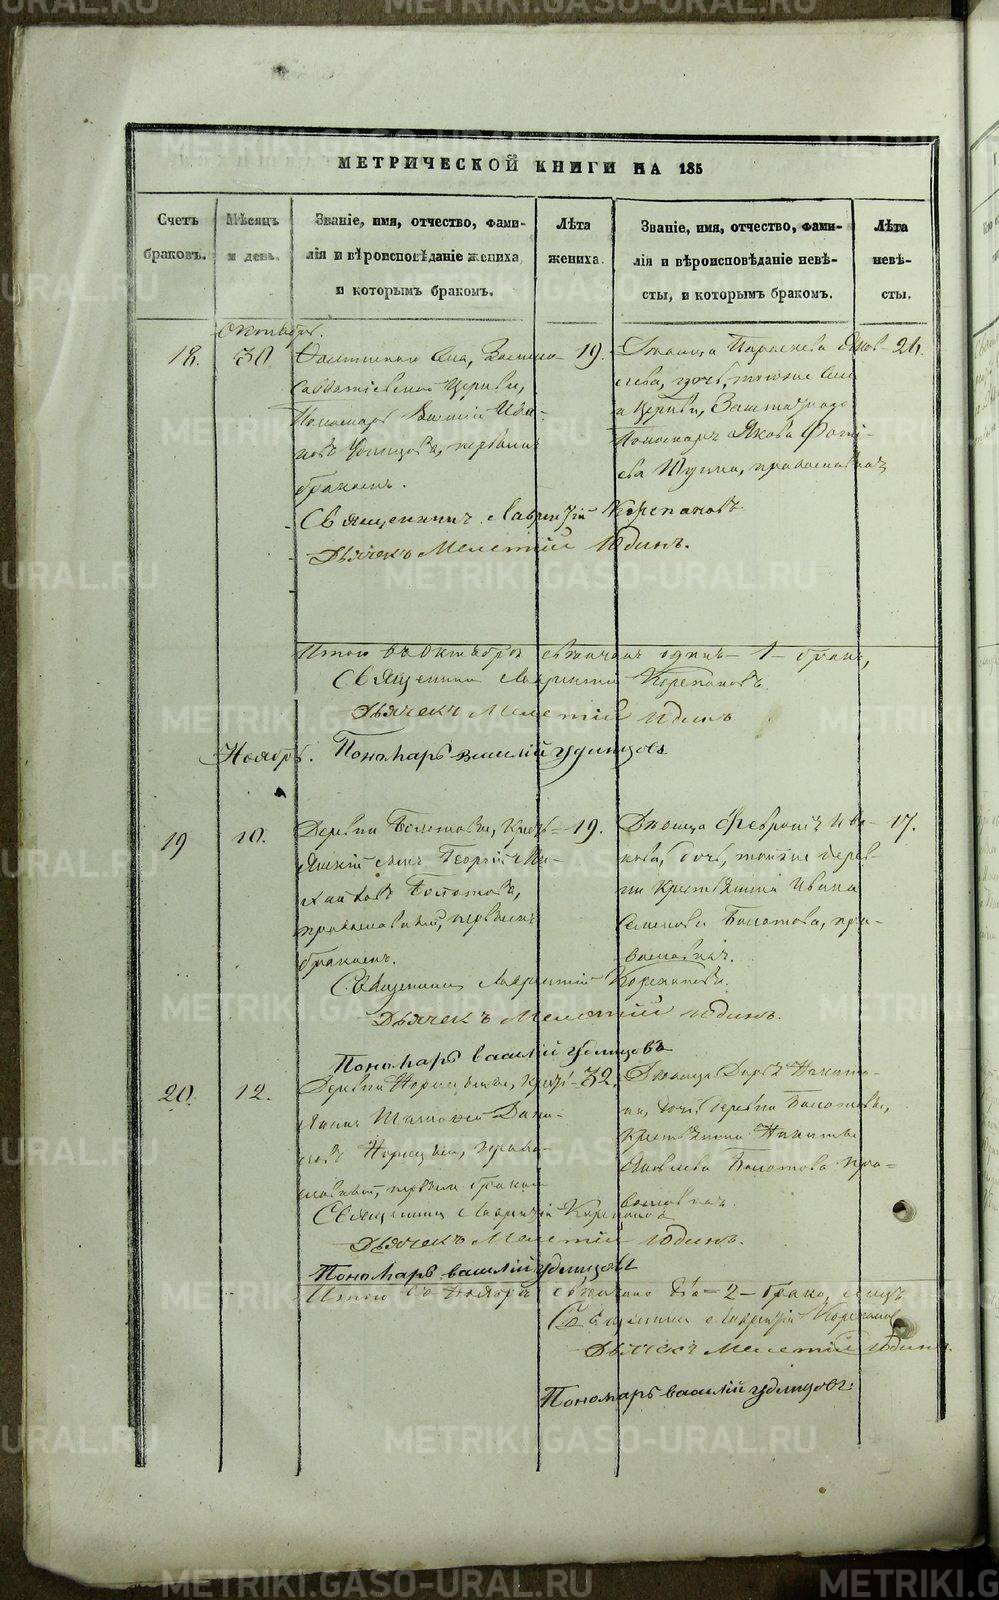 МЕТРИЧЕСКОЙ КНИГИ НА 185
Счетъ браковъ.
Мѣсяцъ и день.
Званіе, имя, отчество, фами-
лія и вѣроисповѣданіе жениха
и которымъ бракомъ.
Лѣта жениха.
Званіе, имя, отчество, фами-
лія и вѣроисповѣданіе невѣ-
сты, и которымъ бракомъ.
Лѣта невѣ-
сты.
Октября.
18.
30.
Церкви,
Пономарь Василій Ива-
новъ Удинцовъ, первымъ
бракомъ.
19.
Дѣвица Параскева Яков-
лева, дочь,
и Церкви, Заштатнаго
Пономаря Якова
православная
26.
Священникъ Лаврентій Корепановъ
Дьячекъ Мелетій Юдинъ.
Итого въ Октябрѣ одинъ - 1 - бракъ,
Священникъ Лаврентій Корепановъ
Дьячекъ Мелетій Юдинъ
Ноябрь.
Пономарь василій удинцовъ
19
10.
Деревни Болотовы, Кресть-
янскій сынъ Георгій Ми-
хайловъ Болотовъ,
православный, первымъ
бракомъ.
19.
Дѣвица Февронія Ива-
нова, дочь, тойже дерев-
ни Крестьянина Ивана
Семенова Болотова, пра-
вославная.
17.
Священникъ Лаврентій Корепановъ.
Дьячекъ Мелетій Юдинъ.
Пономарь василій удинцовъ
20.
12.
Деревни
православный, первымъ бракомъ
32.
Дѣвица Дарья Никити-
на, дочь, деревни Болотовы,
Крестьянина Никиты
Яковлева Болотова пра-
вославная.
Священникъ Лаврентій Корепановъ
Дьячекъ Мелетій Юдинъ.
Пономарь василій удинцовъ
Итого въ Ноябрѣ два - 2 - брака,
Священникъ Лаврентій Корепановъ
Дьячекъ Мелетій Юдинъ.
Пономарь василій удинцовъ.
METRIKI.GASO-URAL.RU